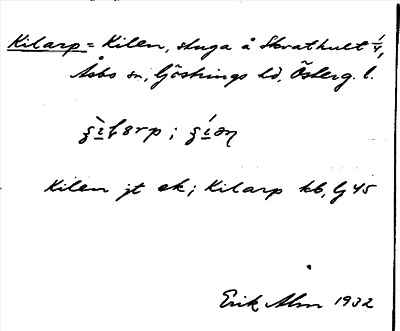 Kilarp = Kilen, stuga å Skrathult 1/4,
Åsbo sn, Göstrings hd, Österg. l.
Kilen jt ek; Kilarp kb, Gj 45
Erik Alm 1932